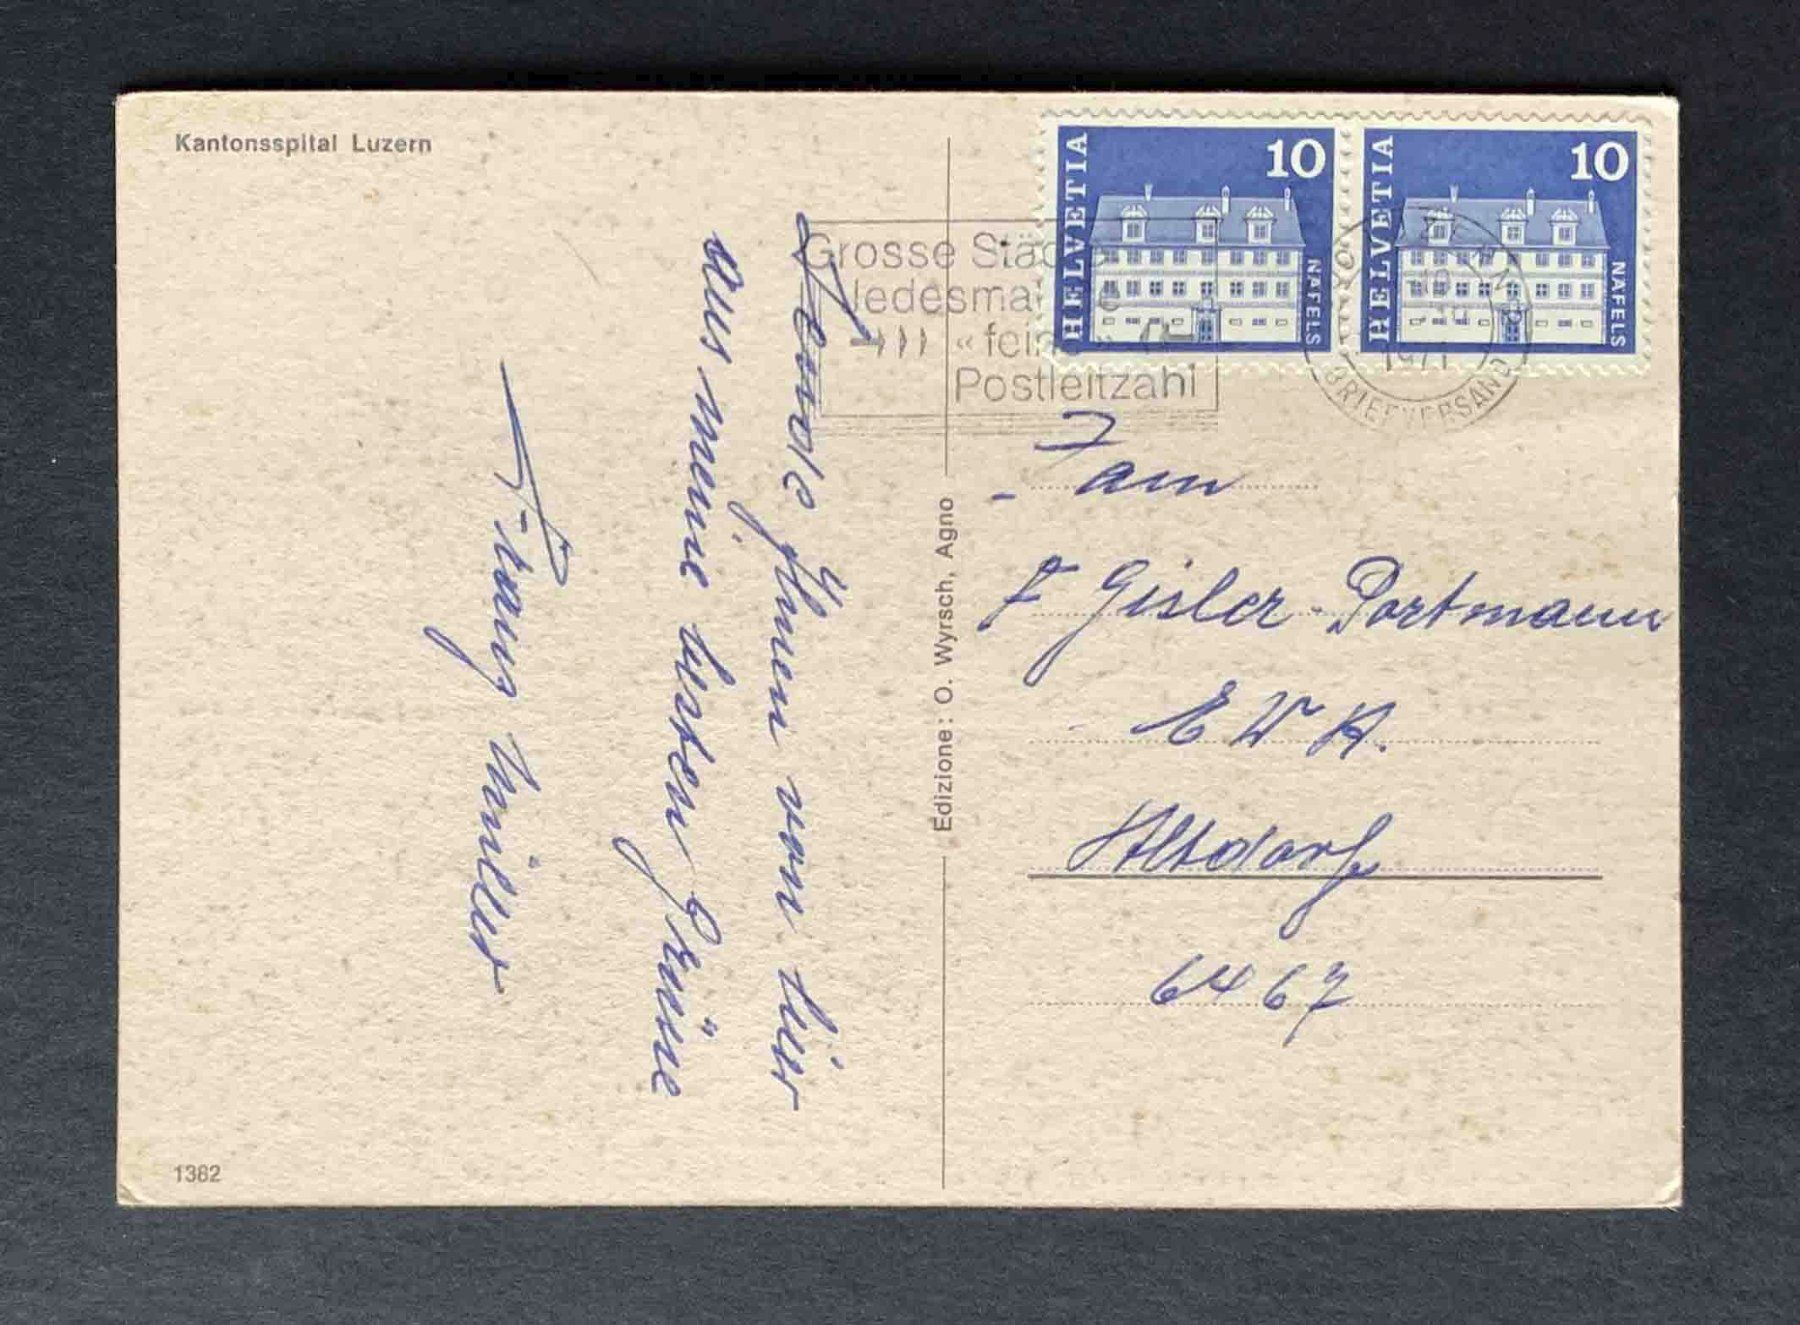 Kantonsspital Luzern
HELVETIA
10
NÄFELS
HELVETIA
10
NÄFELS
Grosse Städte
Jedesmal
« feine »
Postleitzahl
1971
BRIEFVERSAND
Sende Ihnen von hier
aus meine besten Grüsse
Müller
Edizione: O. Wyrsch, Agno
Fam
F Gisler-Portmann
E W A.
Altdorf
6467
1382